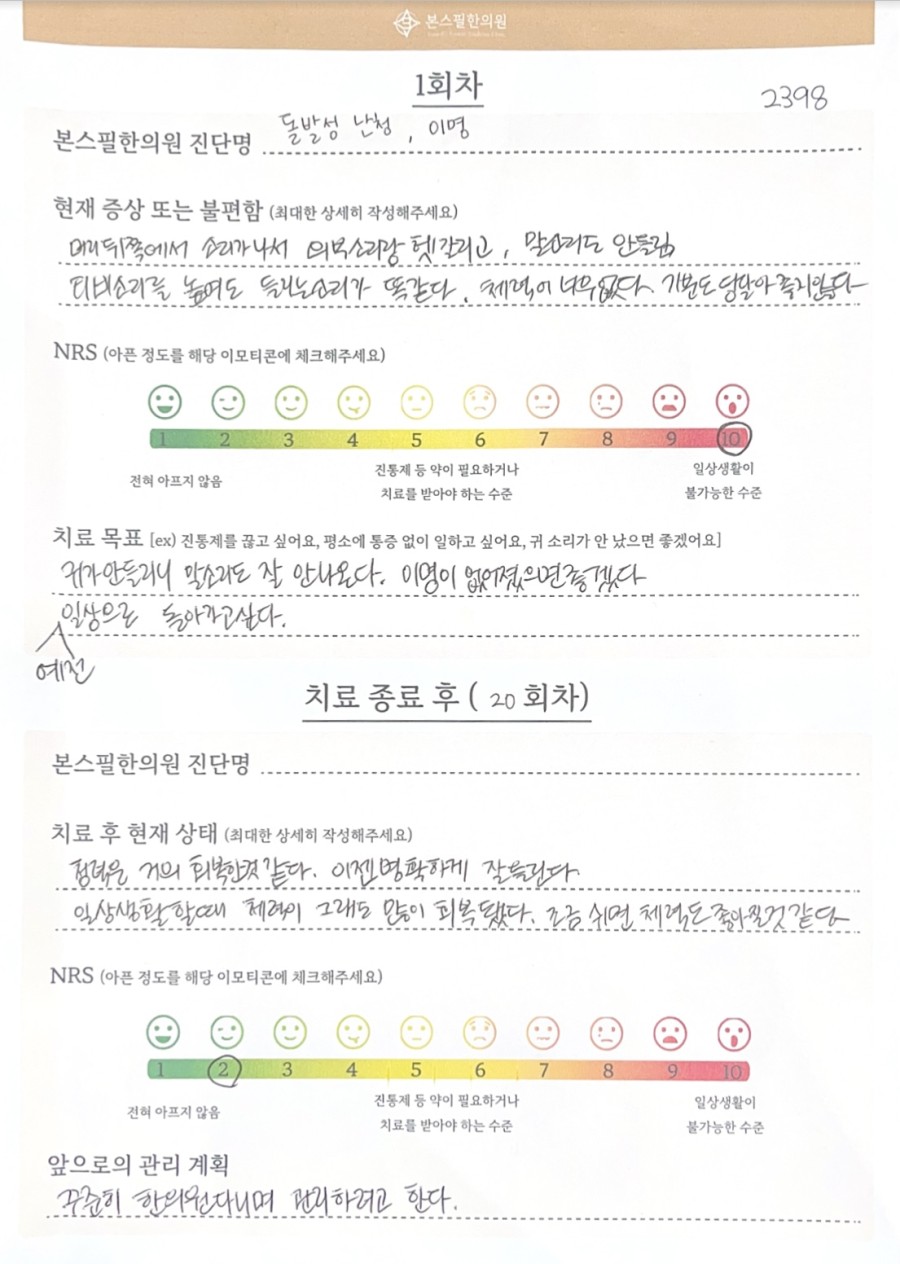 본스필한의원
1회차
2398
본스필한의원 진단명 돌발성 난청, 이명
현재 증상 또는 불편함 (최대한 상세히 작성해주세요)
머리뒤쪽에서 소리가나서 외부소리랑 헷갈리고, 말소리도 안들림
티비소리를 높여도 들리는소리가 똑같다. 체력이 너무없다. 기분도 덩달아 좋지않다
NRS (아픈 정도를 해당 이모티콘에 체크해주세요)
1 2 3 4 5 6 7 8 9 10
전혀 아프지 않음 진통제 등 약이 필요하거나 일상생활이
치료를 받아야 하는 수준 불가능한 수준
치료 목표 [ex) 진통제를 끊고 싶어요, 평소에 통증 없이 일하고 싶어요, 귀 소리가 안 났으면 좋겠어요]
귀가안들리니 말소리도 잘 안나온다. 이명이 없어졌으면좋겠다
일상으로 돌아가고싶다.
예전
치료 종료 후 ( 20 회차)
본스필한의원 진단명
치료 후 현재 상태 (최대한 상세히 작성해주세요)
청력은 거의 회복한것같다. 이젠명확하게 잘들린다
일상생활할때 체력이 그래도 많이 회복됐다. 조금 쉬면 체력도좋아질것같다
NRS (아픈 정도를 해당 이모티콘에 체크해주세요)
1 2 3 4 5 6 7 8 9 10
전혀 아프지 않음 진통제 등 약이 필요하거나 일상생활이
치료를 받아야 하는 수준 불가능한 수준
앞으로의 관리 계획
꾸준히 한의원다니며 관리하려고 한다.